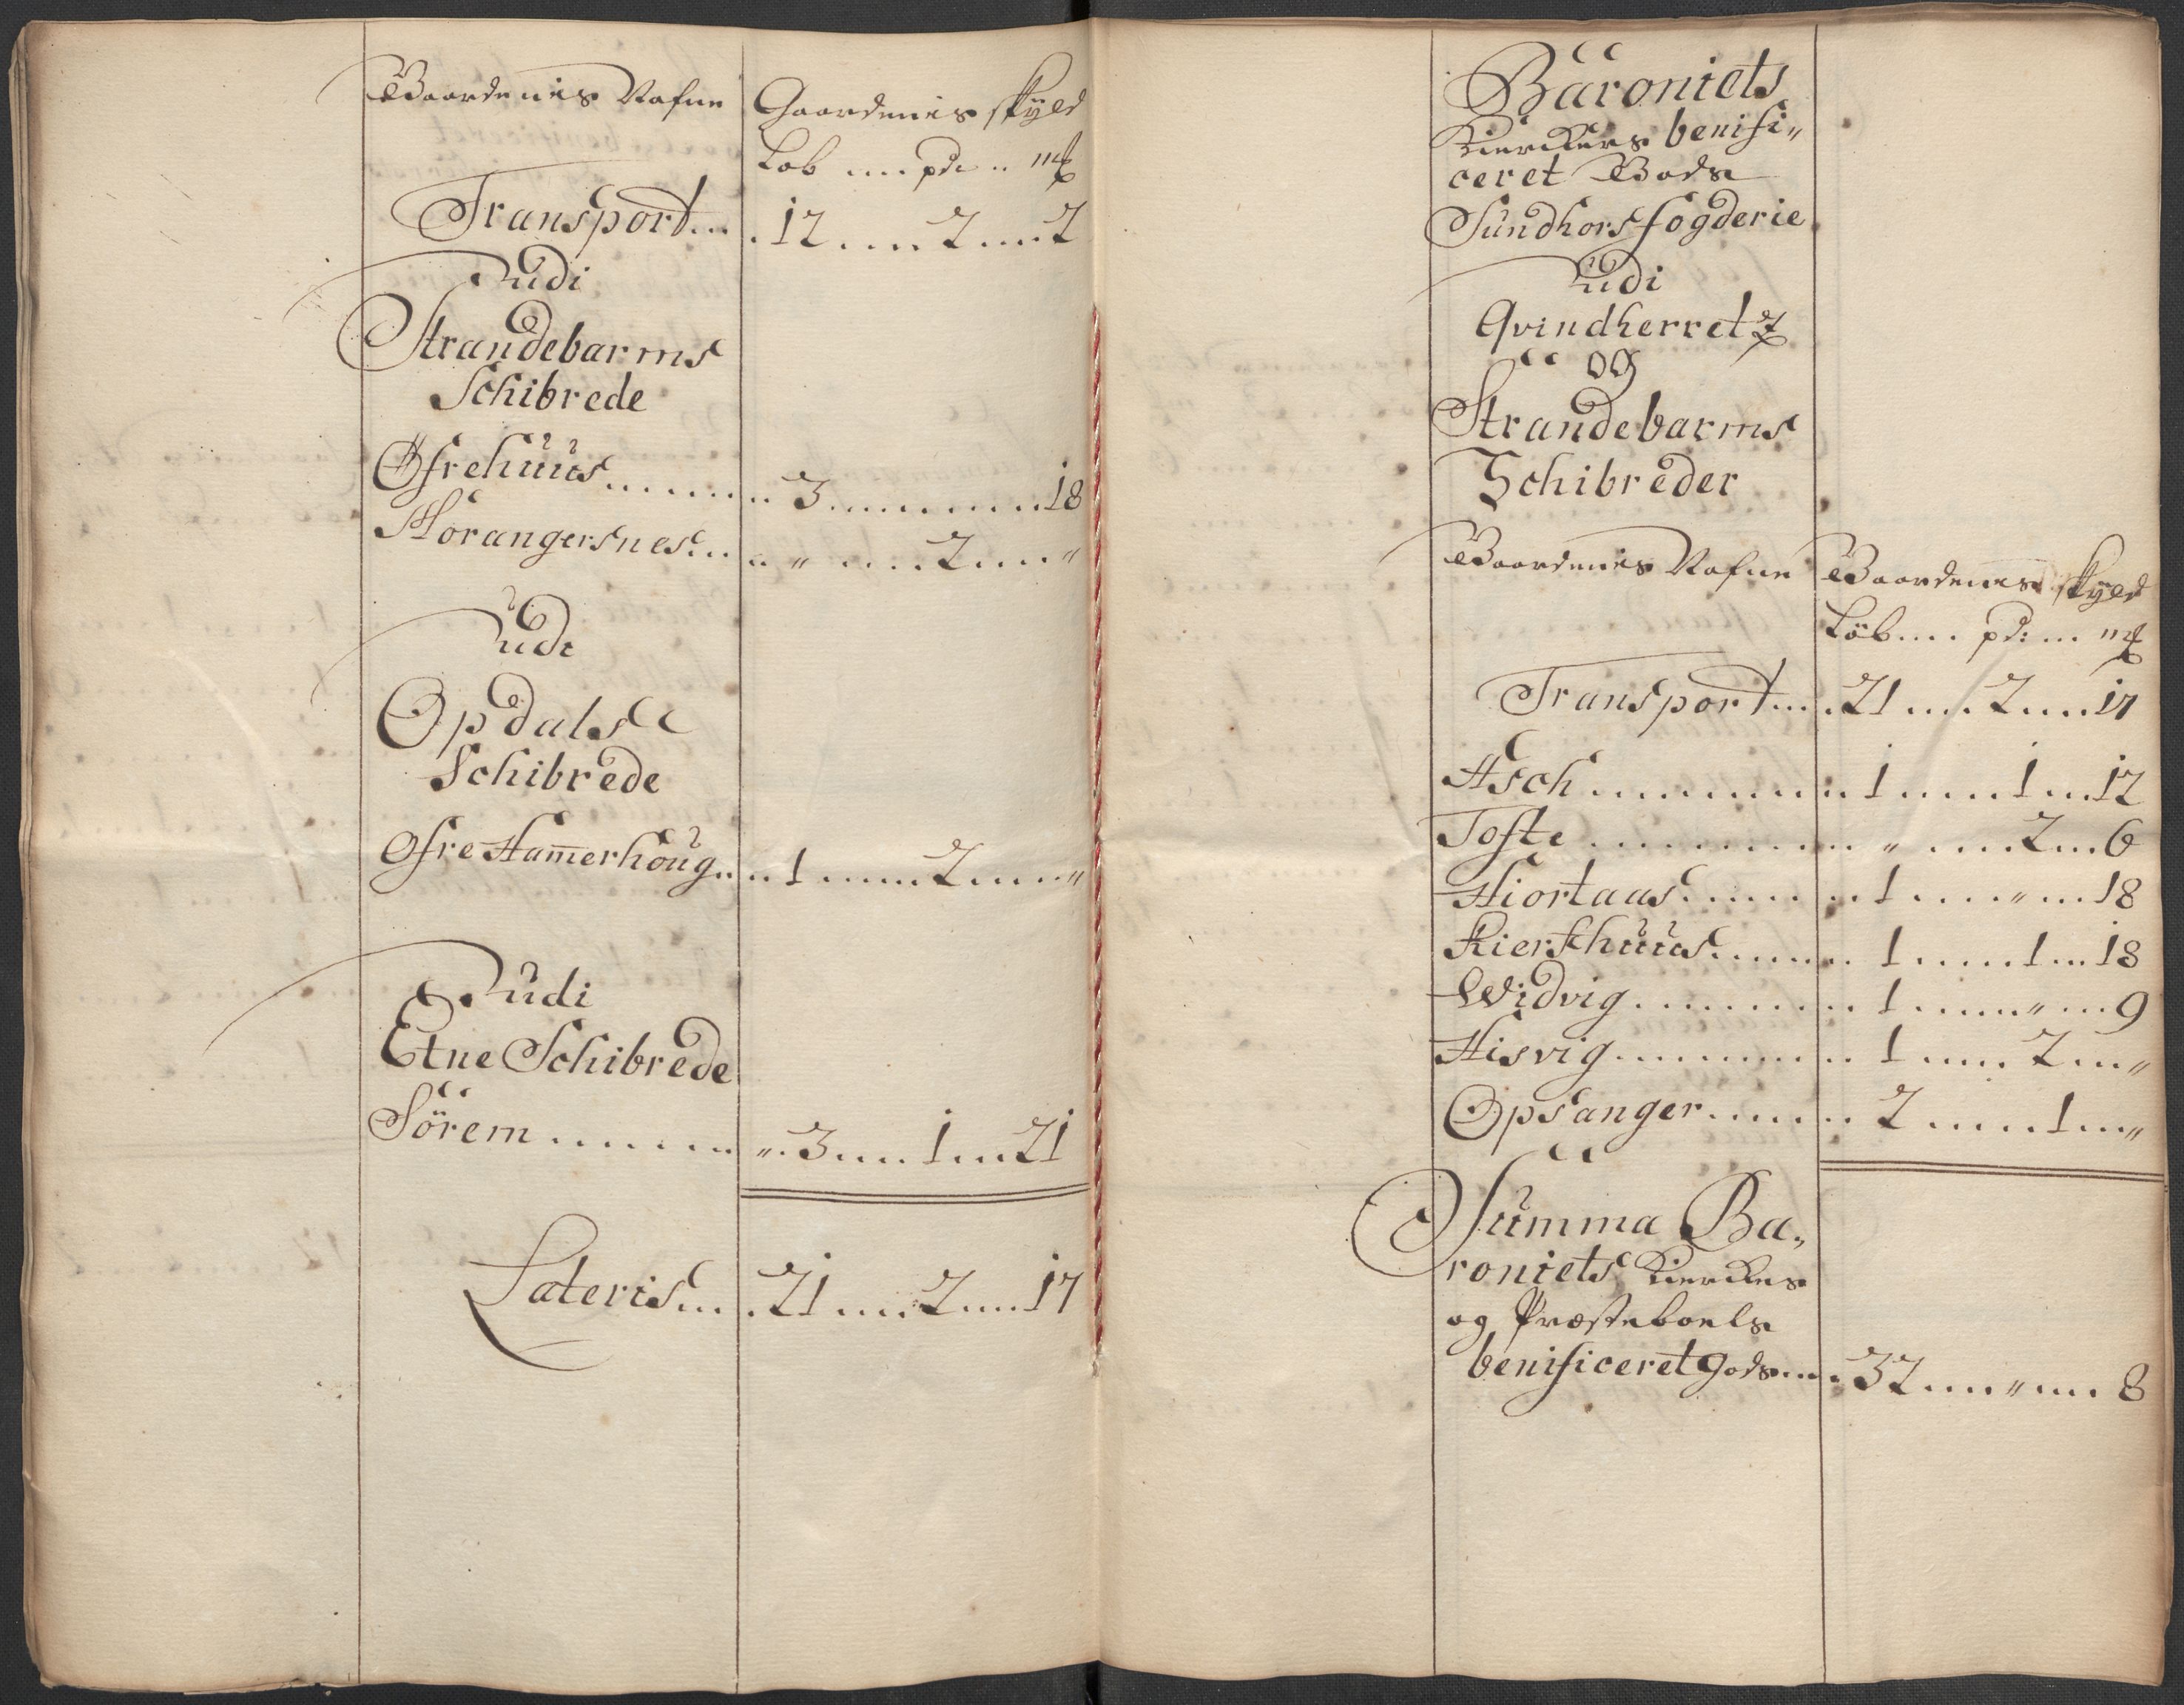 Gaardenis Nafne
Gaardenis skyld
Lob .... pd: .. m℔
Transport... .12 .... 2 .... 2
Udi
Strandebarms
Schibrede
Øfrehuus ........ 3 ........ 18
Horangersnes ... " .... 2 .... "
Udi
Opdals
Schibrede
Ofre Ham̄erhoug .. 1 .... 2 .... "
Udi
Etne Schibrede
Sörem ........ 3 .... 1 ... 21
Lateris ... 21 .... 2 .... 17
Baroniets
Kierkers benifi„
ceret Gods
Sundhors fogderie
Udi
Qvindherret
og
Strandebarms
Schibreder
Gaardenis Nafne
Gaardenis skyld
Löb .... pd: ... m℔
Transport ... 21 .... 2 .... 17
Asch ........ 1 .... 1 ... 12
Tofte ........ " .... 2 ... 6
Hiortaas ...... 1 .... " ... 18
Kierfhuus ...... 1 .... 1 ... 18
Widvig ........ 1 .... " ... 9
Hisvig ........ 1 .... 2 ... "
Opsanger ...... 2 .... 1 ... "
Summa Ba„
roniets Kierkes
og Præsteboels
benificeret gods ... 32 .... " .... 8